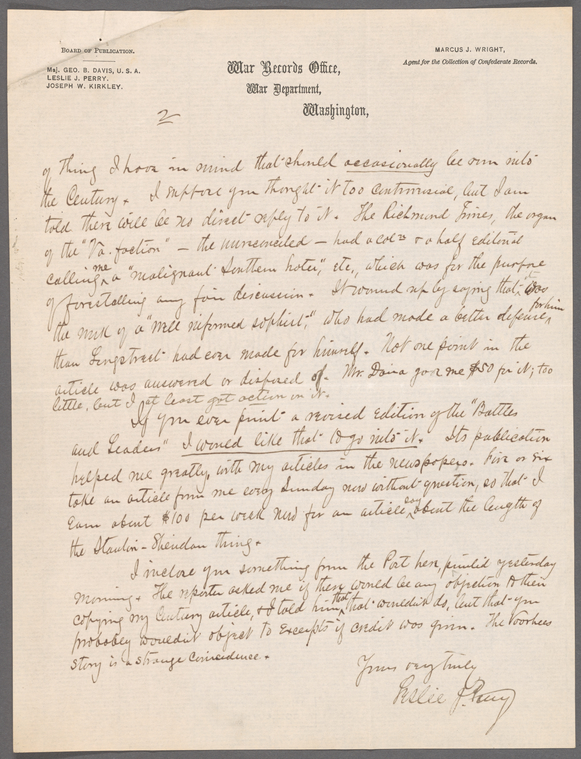 BOARD OF PUBLICATION.
Maj. GEO. B. DAVIS, U. S. A.
LESLIE J. PERRY.
JOSEPH W. KIRKLEY.
War Records Office,
War Department,
Washington,
MARCUS J. WRIGHT,
Agent for the Collection of Confederate Records.
2
of thing I have in mind that should occasionally be run into
the Century. I suppose you thought it too controversial, but I am
told there will be no direct reply to it. The Richmond Times, the organ
of the "Va. faction" — the unreconciled — had a col & a half editorial
calling me a "malignant Southern hater," etc., which was for the purpose
of forestalling any fair discussion. It wound up by saying that it was
the work of a "well informed sophist," who had made a better defense, for him
than Longstreet had ever made for himself. Not one point in the
article was answered or disposed of. Mr. Dana gave me $50 for it; too
little, but I at least got action on it.
If you ever print a revised edition of the "Battles
and Leaders" I would like that to go into it. Its publication
helped me greatly, with my articles in the newspapers. Five or six
take an article from me every Sunday now without question, so that I
earn about $100 per week now for an article say about the length of
the Stanton-Sheridan thing.
I inclose you something from the Post here, printed yesterday
morning. The reporter asked me if there would be any objection to their
copying my Century article, & I told him that that wouldn't do, but that you
probably wouldn't object to excerpts if credit was given. The Voorhees
story is a strange coincidence.
Yours very truly
Leslie J. Perry